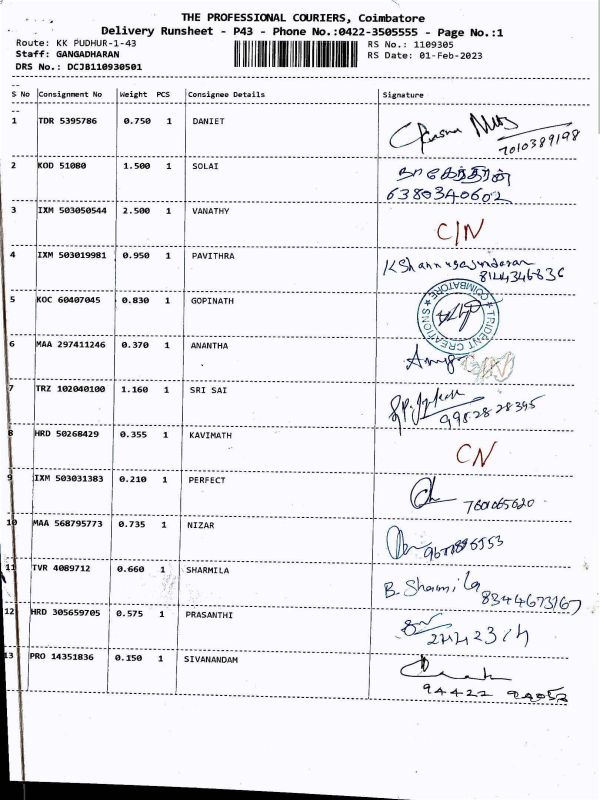 THE PROFESSIONAL COURIERS, Coimbatore
Delivery Runsheet - P43 - Phone No.:0422-3505555 - Page No.:1
Route: KK PUDHUR-1-43
RS No.: 1109305
Staff: GANGADHARAN
RS Date: 01-Feb-2023
DRS No.: DCJB110930501
S No Consignment No Weight PCS Consignee Details Signature
1 TDR 5395786 0.750 1 DANIET
7010389198
2 KOD 51080 1.500 1 SOLAI
6380340602
3 IXM 503050544 2.500 1 VANATHY
C/N
4 IXM 503019981 0.950 1 PAVITHRA
8144346836
5 KOC 60407045 0.830 1 GOPINATH
TRIDENT CREATIONS COIMBATORE
6 MAA 297411246 0.370 1 ANANTHA
7 TRZ 102040100 1.160 1 SRI SAI
9982828345
8 HRD 50268429 0.355 1 KAVIMATH
CN
9 IXM 503031383 0.210 1 PERFECT
10 MAA 568795773 0.735 1 NIZAR
11 TVR 4089712 0.660 1 SHARMILA
B. Sharmila
8344673167
12 HRD 305659705 0.575 1 PRASANTHI
13 PRO 14351836 0.150 1 SIVANANDAM
94422 94053